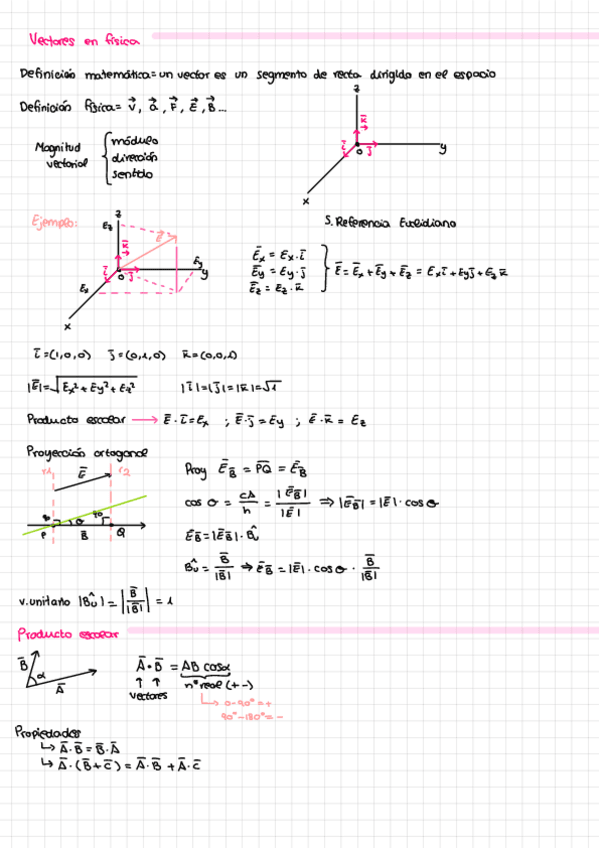 Vectores en física
Definición matemática = un vector es un segmento de recta dirigido en el espacio
Definición física = v⃗, a⃗, F⃗, E⃗, B⃗...
Magnitud vectorial { módulo
dirección
sentido
z
k̄
ī O j̄ y
x
S. Referencia Euclidiano
Ejemplo:
z
Ez
k̄ Ē
ī O j̄ Ey y
Ex
x
Ēx = Ex · ī
Ēy = Ey · j̄
Ēz = Ez · k̄
} Ē = Ēx + Ēy + Ēz = Exī + Eyj̄ + Ez k̄
ī = (1,0,0) j̄ = (0,1,0) k̄ = (0,0,1)
|Ē| = √Ex² + Ey² + Ez² |ī| = |j̄| = |k̄| = √1
Producto escalar → Ē · ī = Ex ; Ē · j̄ = Ey ; Ē · k̄ = Ez
Proyección ortogonal
r1 Ē r2
P B̄ Q
Proy Ē_B̄ = P̄Q̄ = Ē_B̄
cos θ = CA/h = |Ē_B̄|/|Ē| ⇒ |Ē_B̄| = |Ē| · cos θ
Ē_B̄ = |Ē_B̄| · B̂u
B̂u = B̄/|B̄| ⇒ Ē_B̄ = |Ē| · cos θ · B̄/|B̄|
v. unitario |B̂u| = |B̄/|B̄|| = 1
Producto escalar
B̄ α Ā
Ā · B̄ = AB cosα
↑ ↑
vectores nº real (+ -)
↳ 0-90° = +
90° - 180° = -
Propiedades
↳ Ā · B̄ = B̄ · Ā
↳ Ā · (B̄ + C̄) = Ā · B̄ + Ā · C̄